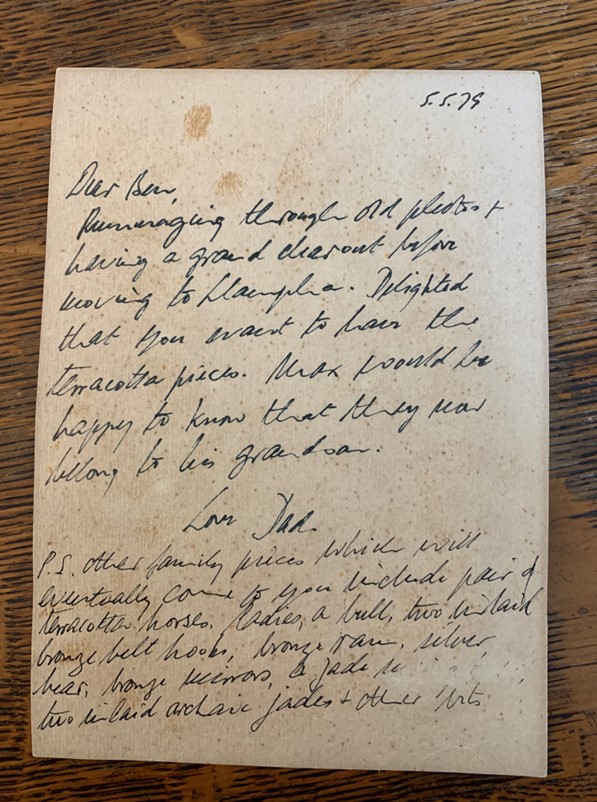 5.5.79
Dear Ben,
Rummaging through old photos +
having a grand clearout before
moving to
Delighted
that you want to have the
terracotta pieces. Max would be
happy to know that they now
belong to his grandson.
Love Dad
P.S. Other family pieces which will
eventually come to you include pair of
terracotta horses, ladies, a bull, two inlaid
bronze belt hooks, bronze ram, silver
bear, bronze mirrors, a jade
two inlaid archaic jades + other